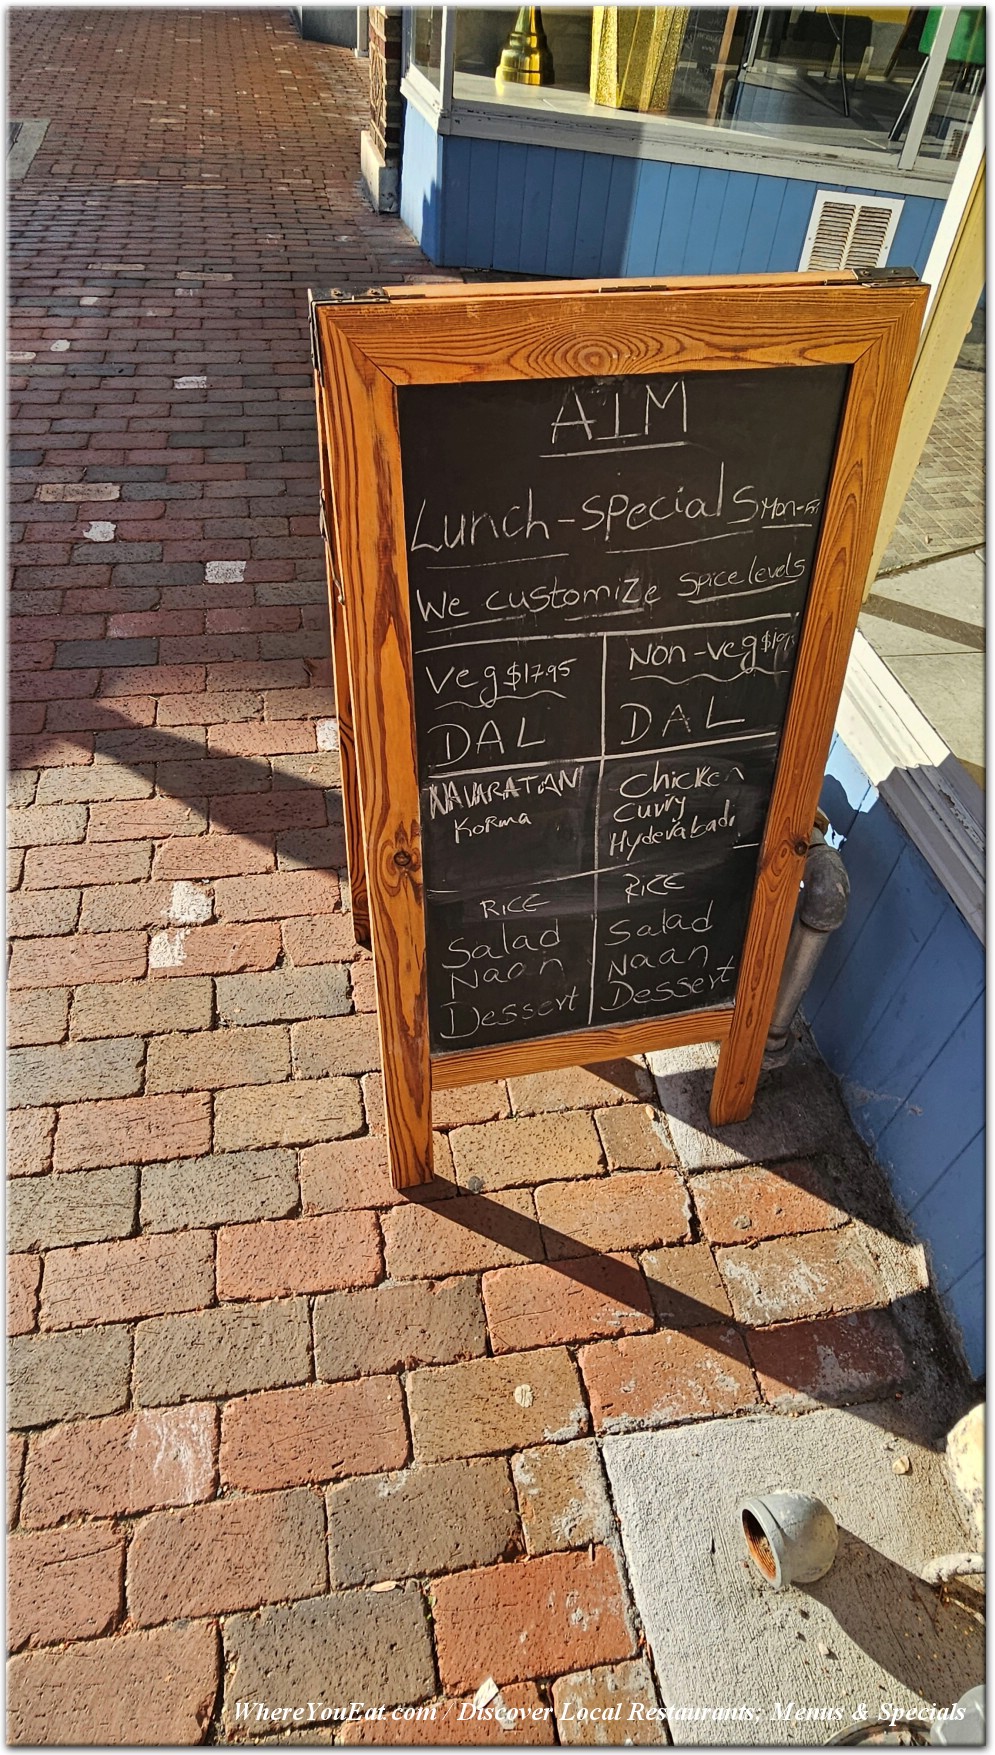 AIM
Lunch-Specials Mon-Fri
We customize Spice levels
Veg $17.95
DAL
NAVARATAN
Korma
RICE
Salad
Naan
Dessert
Non-veg
DAL
Chicken
Curry
Hyderabadi
RICE
Salad
Naan
Dessert
WhereYouEat.com / Discover Local Restaurants; Menus & Specials